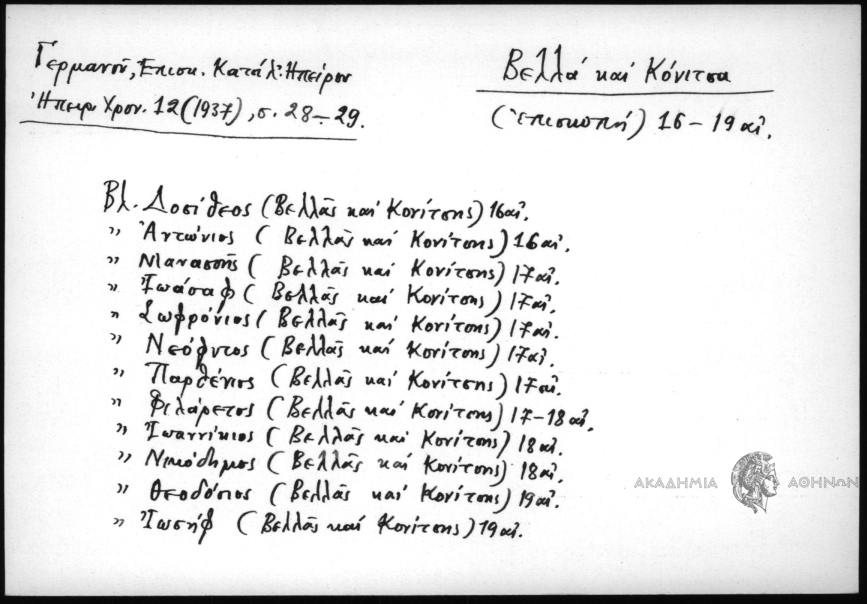 Γερμανοῦ, Ἐπισκ. Κατάλ. Ἠπείρου
Ἠπειρ. Χρον. 12 (1937), σ. 28-29.
Βελλᾶ καὶ Κόνιτσα
(Ἐπισκοπή) 16 - 19 αἰ.
Βλ. Δοσίθεος (Βελλᾶς καὶ Κονίτσης) 16 αἰ.
" Ἀντώνιος (Βελλᾶς καὶ Κονίτσης) 16 αἰ.
" Μανασσῆς (Βελλᾶς καὶ Κονίτσης) 17 αἰ.
" Ἰωάσαφ (Βελλᾶς καὶ Κονίτσης) 17 αἰ.
" Σωφρόνιος (Βελλᾶς καὶ Κονίτσης) 17 αἰ.
" Νεόφυτος (Βελλᾶς καὶ Κονίτσης) 17 αἰ.
" Παρθένιος (Βελλᾶς καὶ Κονίτσης) 17 αἰ.
" Φιλάρετος (Βελλᾶς καὶ Κονίτσης) 17-18 αἰ.
" Ἰωαννίκιος (Βελλᾶς καὶ Κονίτσης) 18 αἰ.
" Νικόδημος (Βελλᾶς καὶ Κονίτσης) 18 αἰ.
" Θεοδόσιος (Βελλᾶς καὶ Κονίτσης) 19 αἰ.
" Ἰωσήφ (Βελλᾶς καὶ Κονίτσης) 19 αἰ.
ΑΚΑΔΗΜΙΑ ΑΘΗΝΩΝ